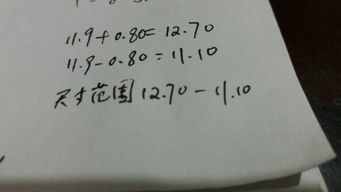 11.9+0.80=12.70
11.9-0.80=11.10
尺寸范围12.70-11.10